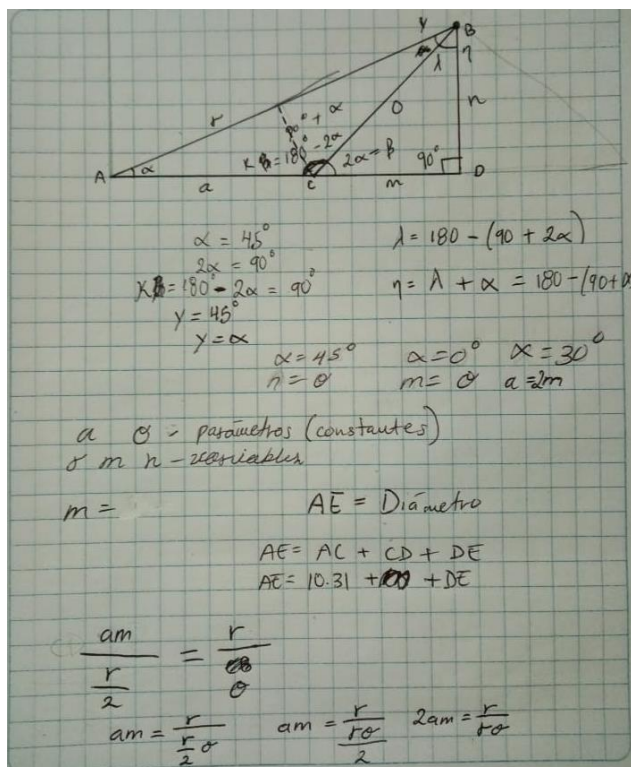 γ B
λ η
r 90° + α O n
A α K = 180° - 2α 2α = β 90° D
a C m
α = 45° λ = 180 - (90 + 2α)
2α = 90°
K = 180° - 2α = 90° η = λ + α = 180 - (90 + α
γ = 45°
γ = α
α = 45° α = 0° α = 30°
n = o m = o a = 2m
a o - parámetros (constantes)
r m n - variables
m = AE = Diámetro
AE = AC + CD + DE
AE = 10.31 + + DE
am / (r/2) = r / o
am = r / (r/2 o) am = r / (ro/2) 2am = r / ro